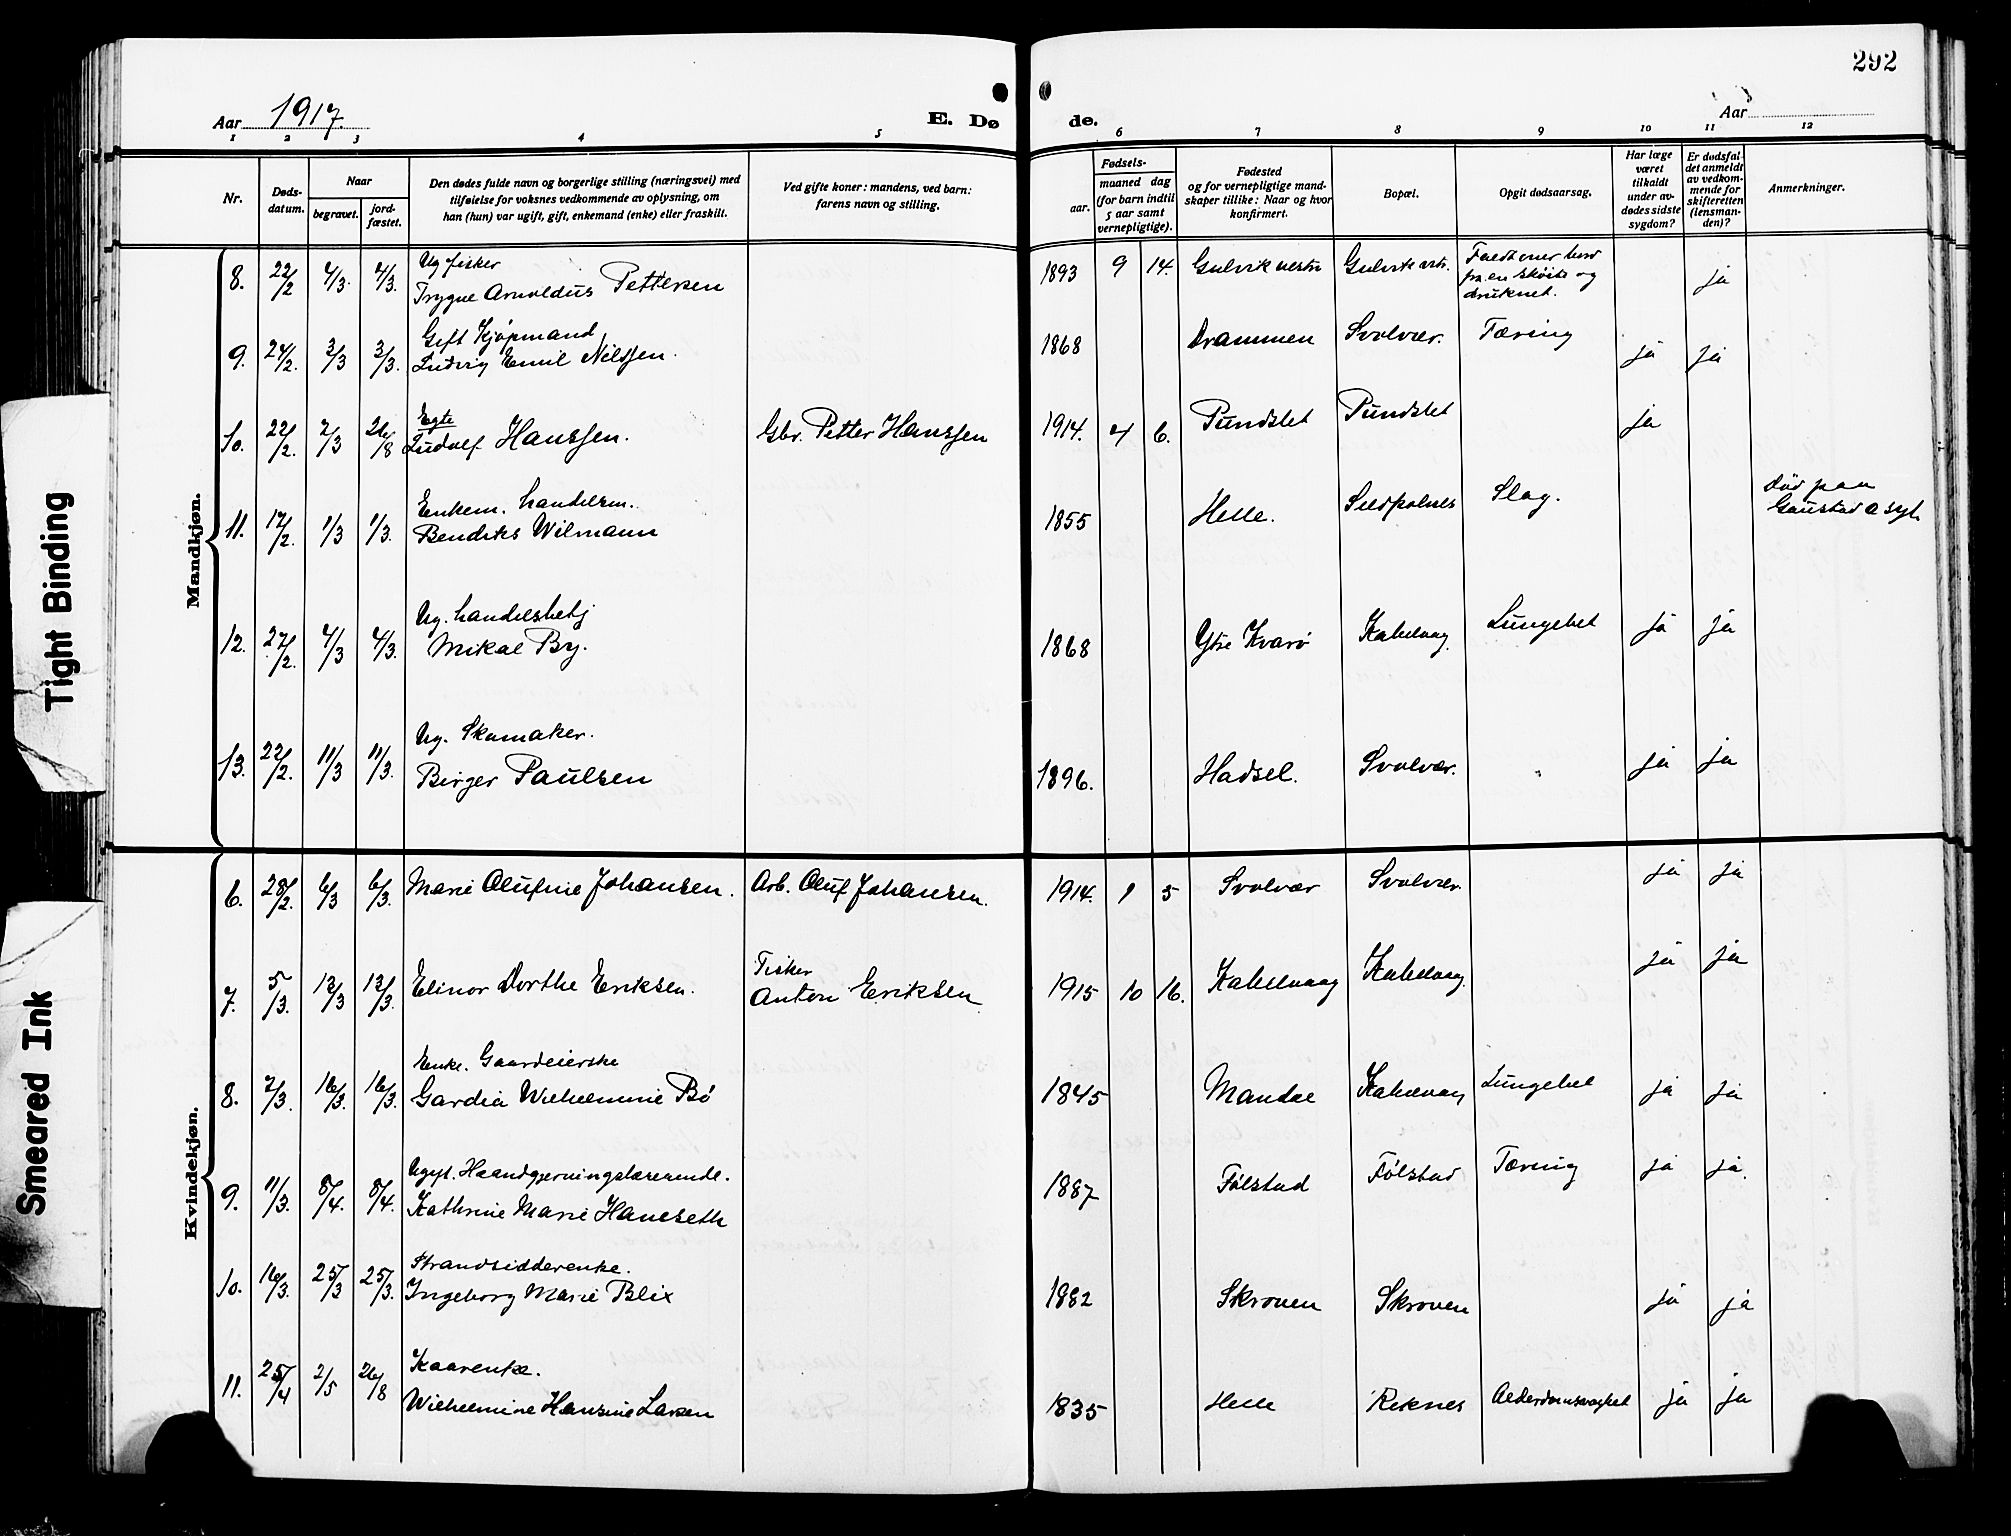 292
Aar 1917.
E. Døde.
Aar
1 2 3 4 5 6 7 8 9 10 11 12
Nr.
Døds-
datum.
Naar
begravet.
jord-
fæstet.
Den dødes fulde navn og borgerlige stilling (næringsvei) med
tilføielse for voksnes vedkommende av oplysning, om
han (hun) var ugift, gift, enkemand (enke) eller fraskilt.
Ved gifte koner: mandens, ved barn:
farens navn og stilling.
Fødsels-
aar.
maaned dag
(for barn indtil
5 aar samt
vernepligtige).
Fødested
og for vernepligtige mand-
skaper tillike: Naar og hvor
konfirmert.
Bopæl.
Opgit dødsaarsag.
Har læge
været
tilkaldt
under av-
dødes sidste
sygdom?
Er dødsfal-
det anmeldt
av vedkom-
mende for
skifteretten
(lensman-
den)?
Anmerkninger.
Mandkjøn.
Ug fisker
8. 22/2 4/3. 4/3. Trygve Arnoldus Pettersen 1893 9 14. Gulvik vestr Gulvik vstr. Faldt over bord
fra en skøite og
druknet. ja
Gift Kjøpmand
9. 24/2. 3/3 3/3. Ludvig Emil Nilssen. 1868 Drammen Svolvær. Tæring ja ja
Egte
10. 22/2. 2/3 26/8 Ludolf Hanssen. Gbr. Petter Hanssen 1914. 4 6. Pundslet Pundslet ja
Enkem. handelsm.
11. 17/2. 1/3 1/3. Bendiks Wilmann 1855 Helle. Sildpolnes Slag. Død paa
Gaustad asyl
Ug. handelsbetj
12. 27/2. 4/3 4/3. Mikal By. 1868 Ytre Kvarø Kabelvaag. Lungebet ja ja
Ug. Skomaker.
13. 22/2. 11/3 11/3. Birger Paulsen 1896. Hadsel. Svolvær. " ja ja
Kvindekjøn.
6. 28/2. 6/3 6/3. Marie Olufine Johansen. Arb. Oluf Johansen. 1914. 1 5 Svolvær Svolvær. ja ja
Fisker
7. 5/3. 13/3 13/3. Elinor Dorthe Eriksen. Anton Eriksen 1915 10 16. Kabelvaag Kabelvaag. ja ja
Enke. Gaardeierske
8. 7/3. 16/3. 16/3. Gardia Wilhelmine Bø 1845 Mandal Kabelvaag Lungebet ja ja
Ugift. Haandgjerningslærerinde.
9. 11/3. 8/4. 8/4. Kathrine Marie Hanseth 1887 Følstad Følstad Tæring ja ja.
Strandsidderenke.
10. 16/3. 25/3 25/3. Ingeborg Marie Blix 1882 Skroven Skroven ja ja
Kaarenke.
11. 25/4 2/5 26/8 Wilhelmine Hansine Larsen 1835 Helle Reknes Alderdomsvaghet ja ja
Tight Binding
Smeared Ink